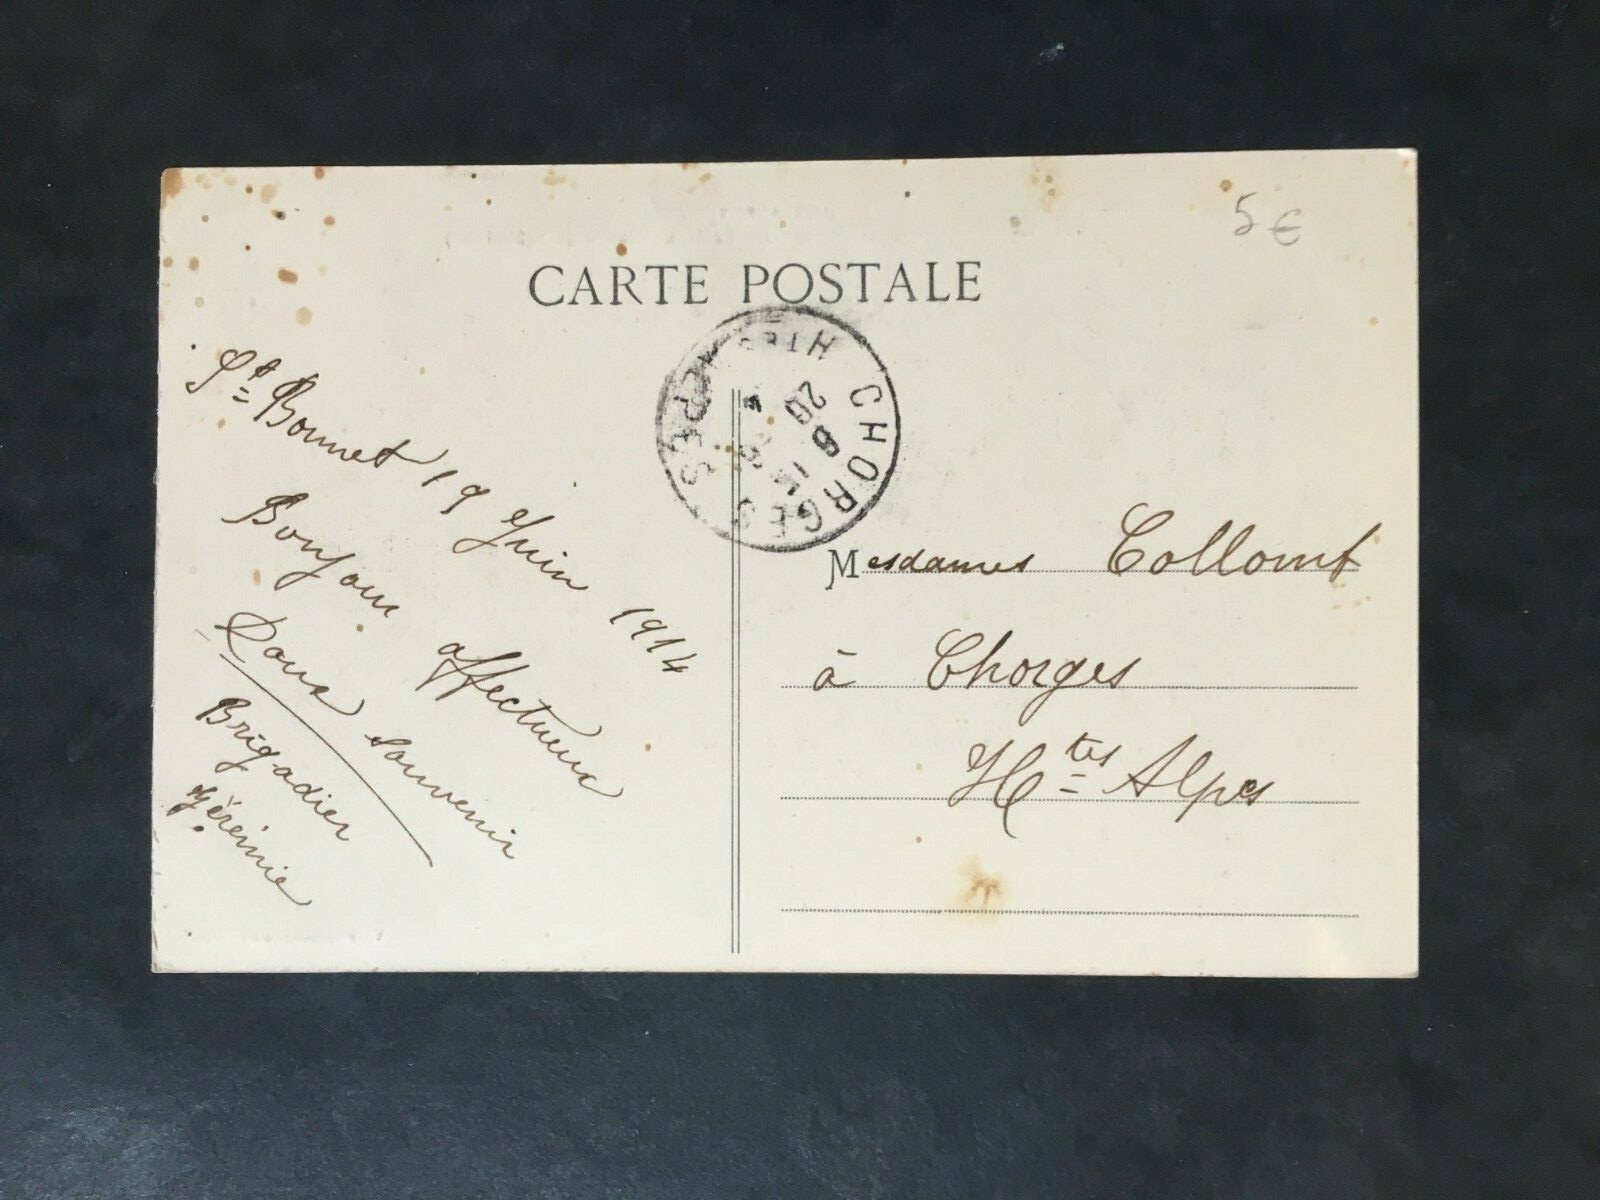 5 €
CARTE POSTALE
CHORGES
HTES ALPES
20
6
St Bonnet 19 Juin 1914
Bonjour affectueux
Doux souvenir
Brigadier
Jérémie
Mesdames Collomb
à Chorges
Htes Alpes